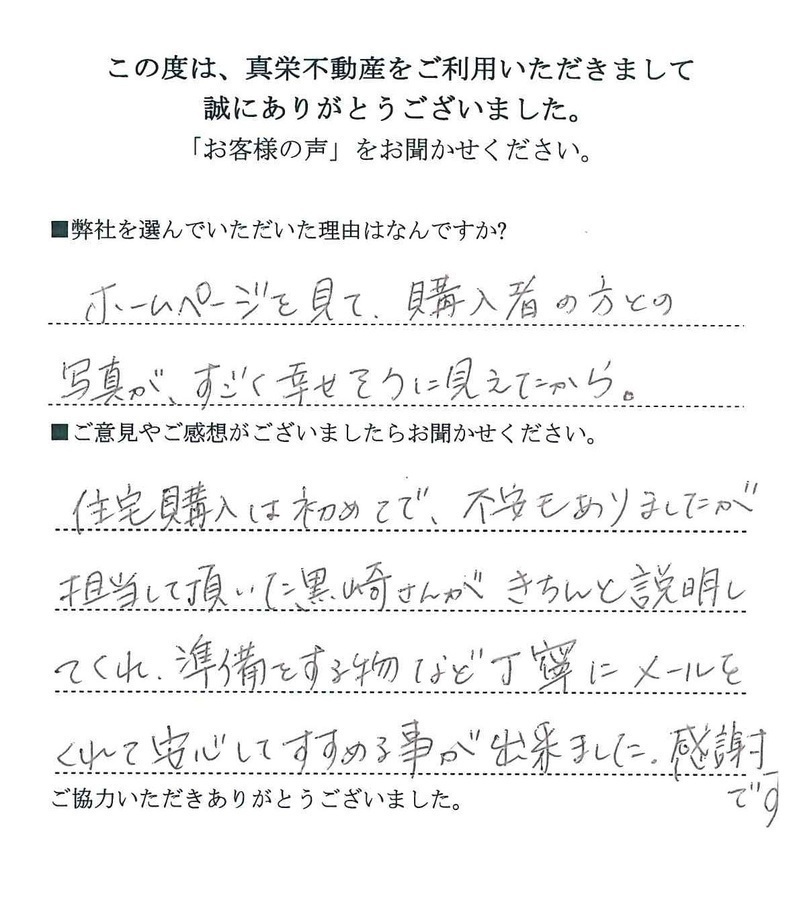 この度は、真栄不動産をご利用いただきまして
誠にありがとうございました。
「お客様の声」をお聞かせください。
■弊社を選んでいただいた理由はなんですか?
ホームページを見て、購入者の方との
写真が、すごく幸せそうに見えたから。
■ご意見やご感想がございましたらお聞かせください。
住宅購入は初めてで、不安もありましたが
担当して頂いた黒崎さんがきちんと説明し
てくれ、準備をする物など丁寧にメールを
くれて安心してすすめる事が出来ました。感謝
です
ご協力いただきありがとうございました。